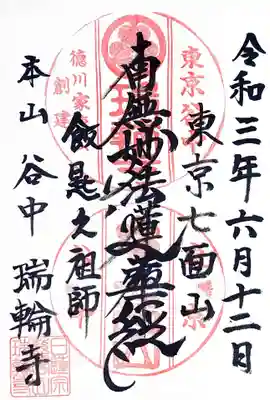 令和三年六月十二日
東京七面山
南無妙法蓮華經
飯匙之祖師
本山 谷中 瑞輪寺
徳川家
創建